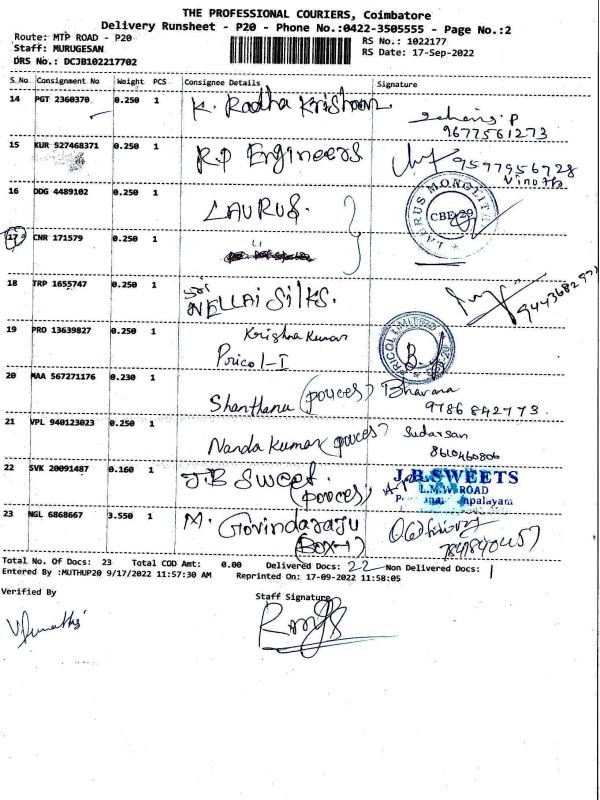 THE PROFESSIONAL COURIERS, Coimbatore
Delivery Runsheet - P20 - Phone No.:0422-3505555 - Page No.:2
Route: MTP ROAD - P20
RS No.: 1022177
Staff: MURUGESAN
RS Date: 17-Sep-2022
DRS No.: DCJB102217702
S.No. Consignment No Weight PCS Consignee Details Signature
14 PGT 2360370 0.250 1 K. Radha Krishnan
9677561273
15 KUR 527468371 0.250 1 R.P Engineers 9597956728
Vinoth
16 DDG 4489102 0.250 1 LAURUS. LAURUS MONOLITH CBE-29
17 CNR 171579 0.250 1
18 TRP 1655747 0.250 1 Sri NELLAI Silks.
19 PRO 13639827 0.250 1 Krishna Kumar
Pricol-I PRICOL LIMITED
20 MAA 567271176 0.230 1 Shanthanu (pouces) Bhavana
9786842773.
21 VPL 940123023 0.250 1 Nanda Kumar (pouces) Sudarsan
8610460806
22 SVK 20091487 0.160 1 J.B Sweet. (pouces) J.B.SWEETS
L.M.W. ROAD
23 NGL 6868667 3.550 1 M. Govindaraju
(BOX-1)
Total No. Of Docs: 23 Total COD Amt: 0.00 Delivered Docs: 22 Non Delivered Docs: 1
Entered By :MUTHUP20 9/17/2022 11:57:30 AM Reprinted On: 17-09-2022 11:58:05
Verified By Staff Signature